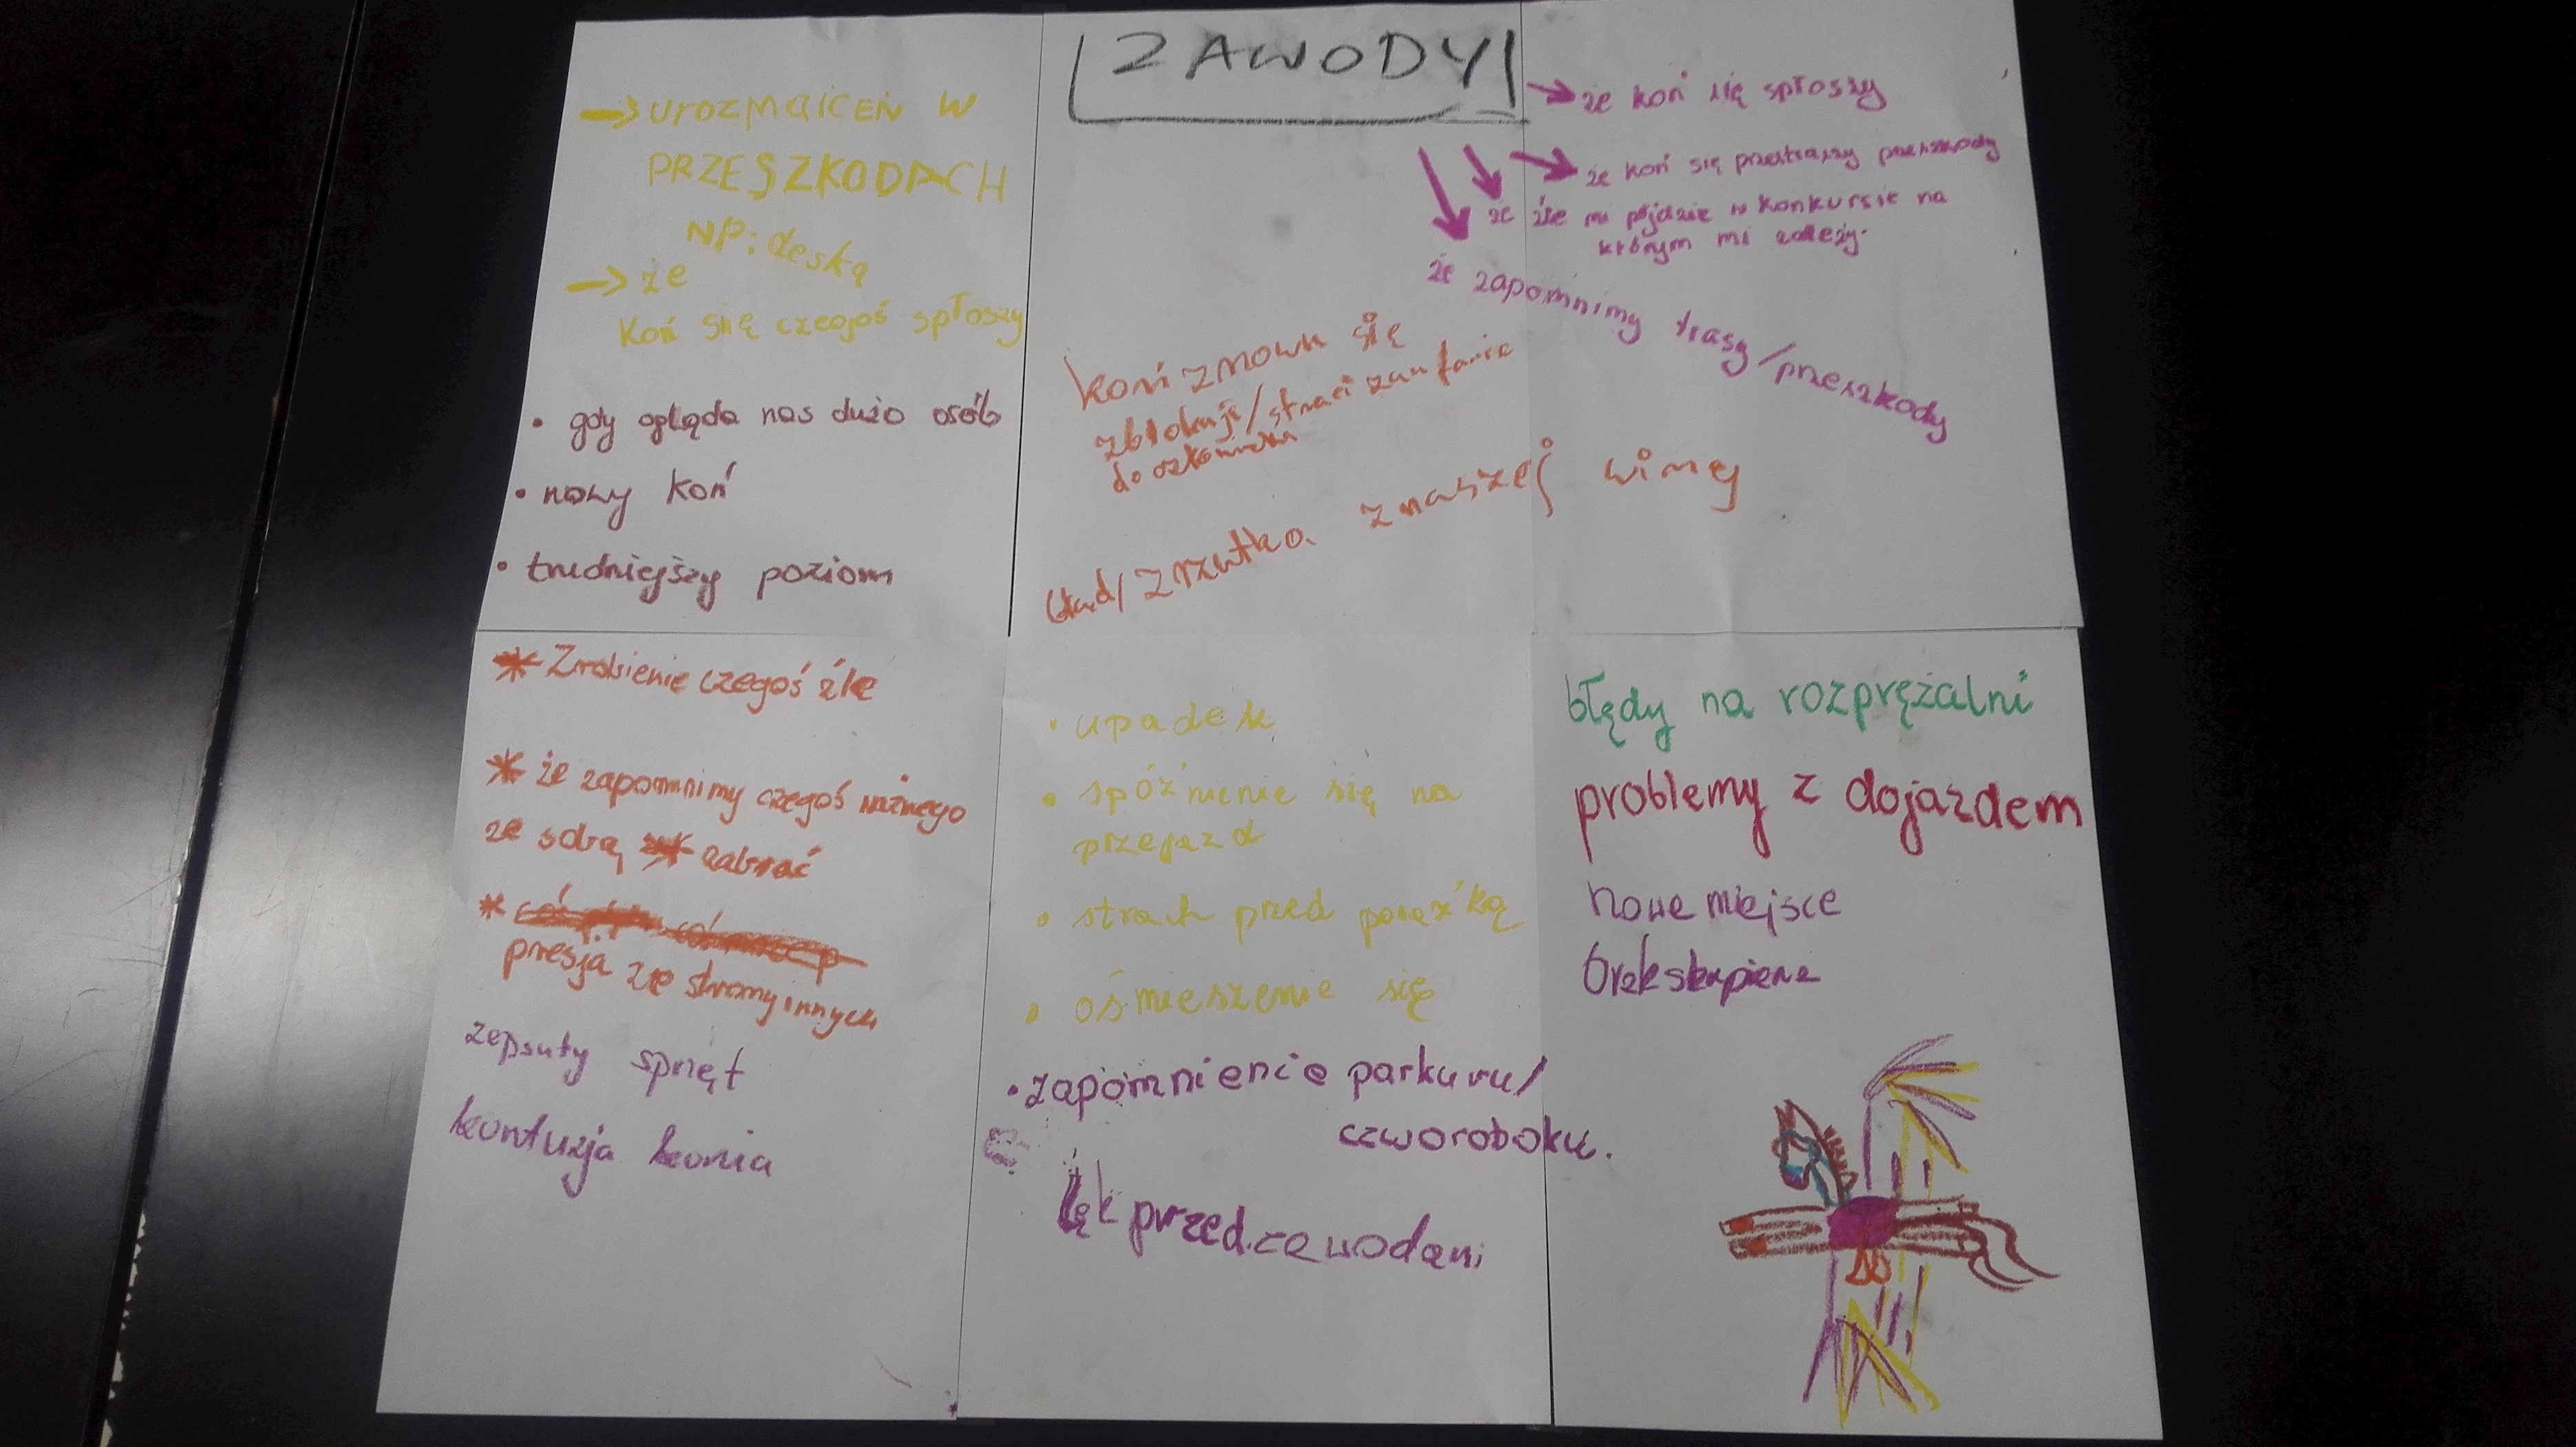 ZAWODY
→ urozmaiceń w
PRZESZKODACH
NP: deską
→ że
Koń się czegoś spłoszy
• gdy ogląda nas dużo osób
• nowy koń
• trudniejszy poziom
→ że koń się spłoszy
→ że koń się przestraszy przeszkody
że źle mi pójdzie w konkursie na
którym mi zależy.
że zapomnimy trasy/przeszkody
koń znowu się
zblokuje/straci zaufanie
do człowieka
błąd/zrzutka z naszej winy
* Zrobienie czegoś źle
* że zapomnimy czegoś ważnego
ze sobą zabrać
*
presja ze strony innych
zepsuty sprzęt
kontuzja konia
• upadek
• spóźnienie się na
przejazd
• strach przed porażką
• ośmieszenie się
• zapomnienie parkuru/
czworoboku.
lęk przed zawodami
błędy na rozprężalni
problemy z dojazdem
nowe miejsce